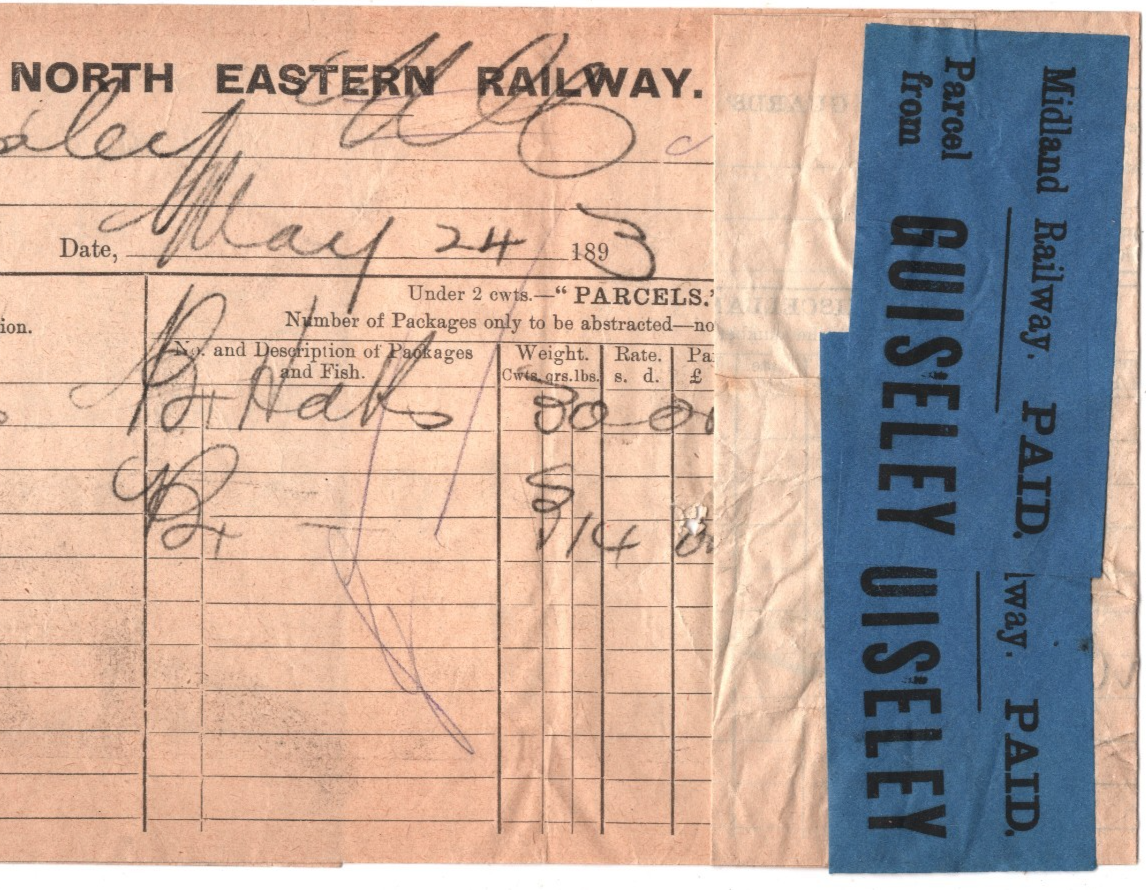 NORTH EASTERN RAILWAY.
Date, May 24 1893
Under 2 cwts.—"PARCELS."
ion. Number of Packages only to be abstracted—no
No. and Description of Packages and Fish. Weight. Rate. Pai
Cwts. qrs. lbs. s. d. £
Hats 30
14
Midland Railway. PAID.
Parcel from
GUISELEY
lway. PAID.
UISELEY